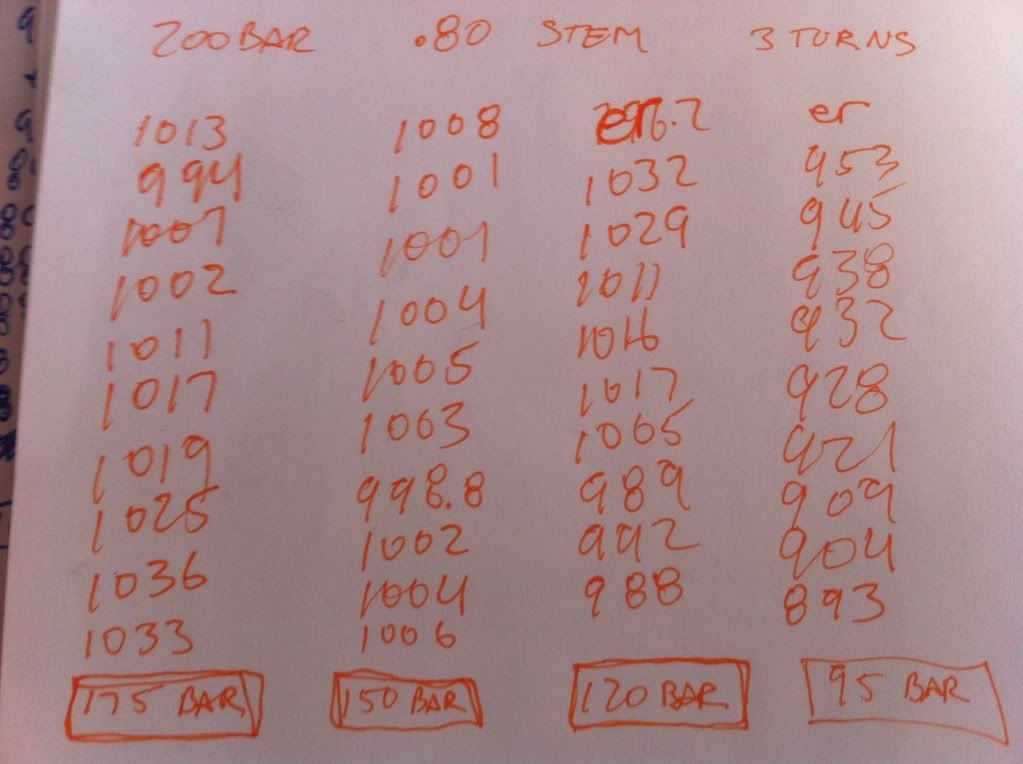 200 BAR .80 STEM 3 TURNS
1013 1008 er er
994 1001 1032 953
1007 1001 1029 945
1002 1004 1011 938
1011 1005 1016 932
1017 1063 1017 928
1019 998.8 1065 921
1025 1002 989 909
1036 1004 992 904
1033 1006 988 893
175 BAR 150 BAR 120 BAR 95 BAR